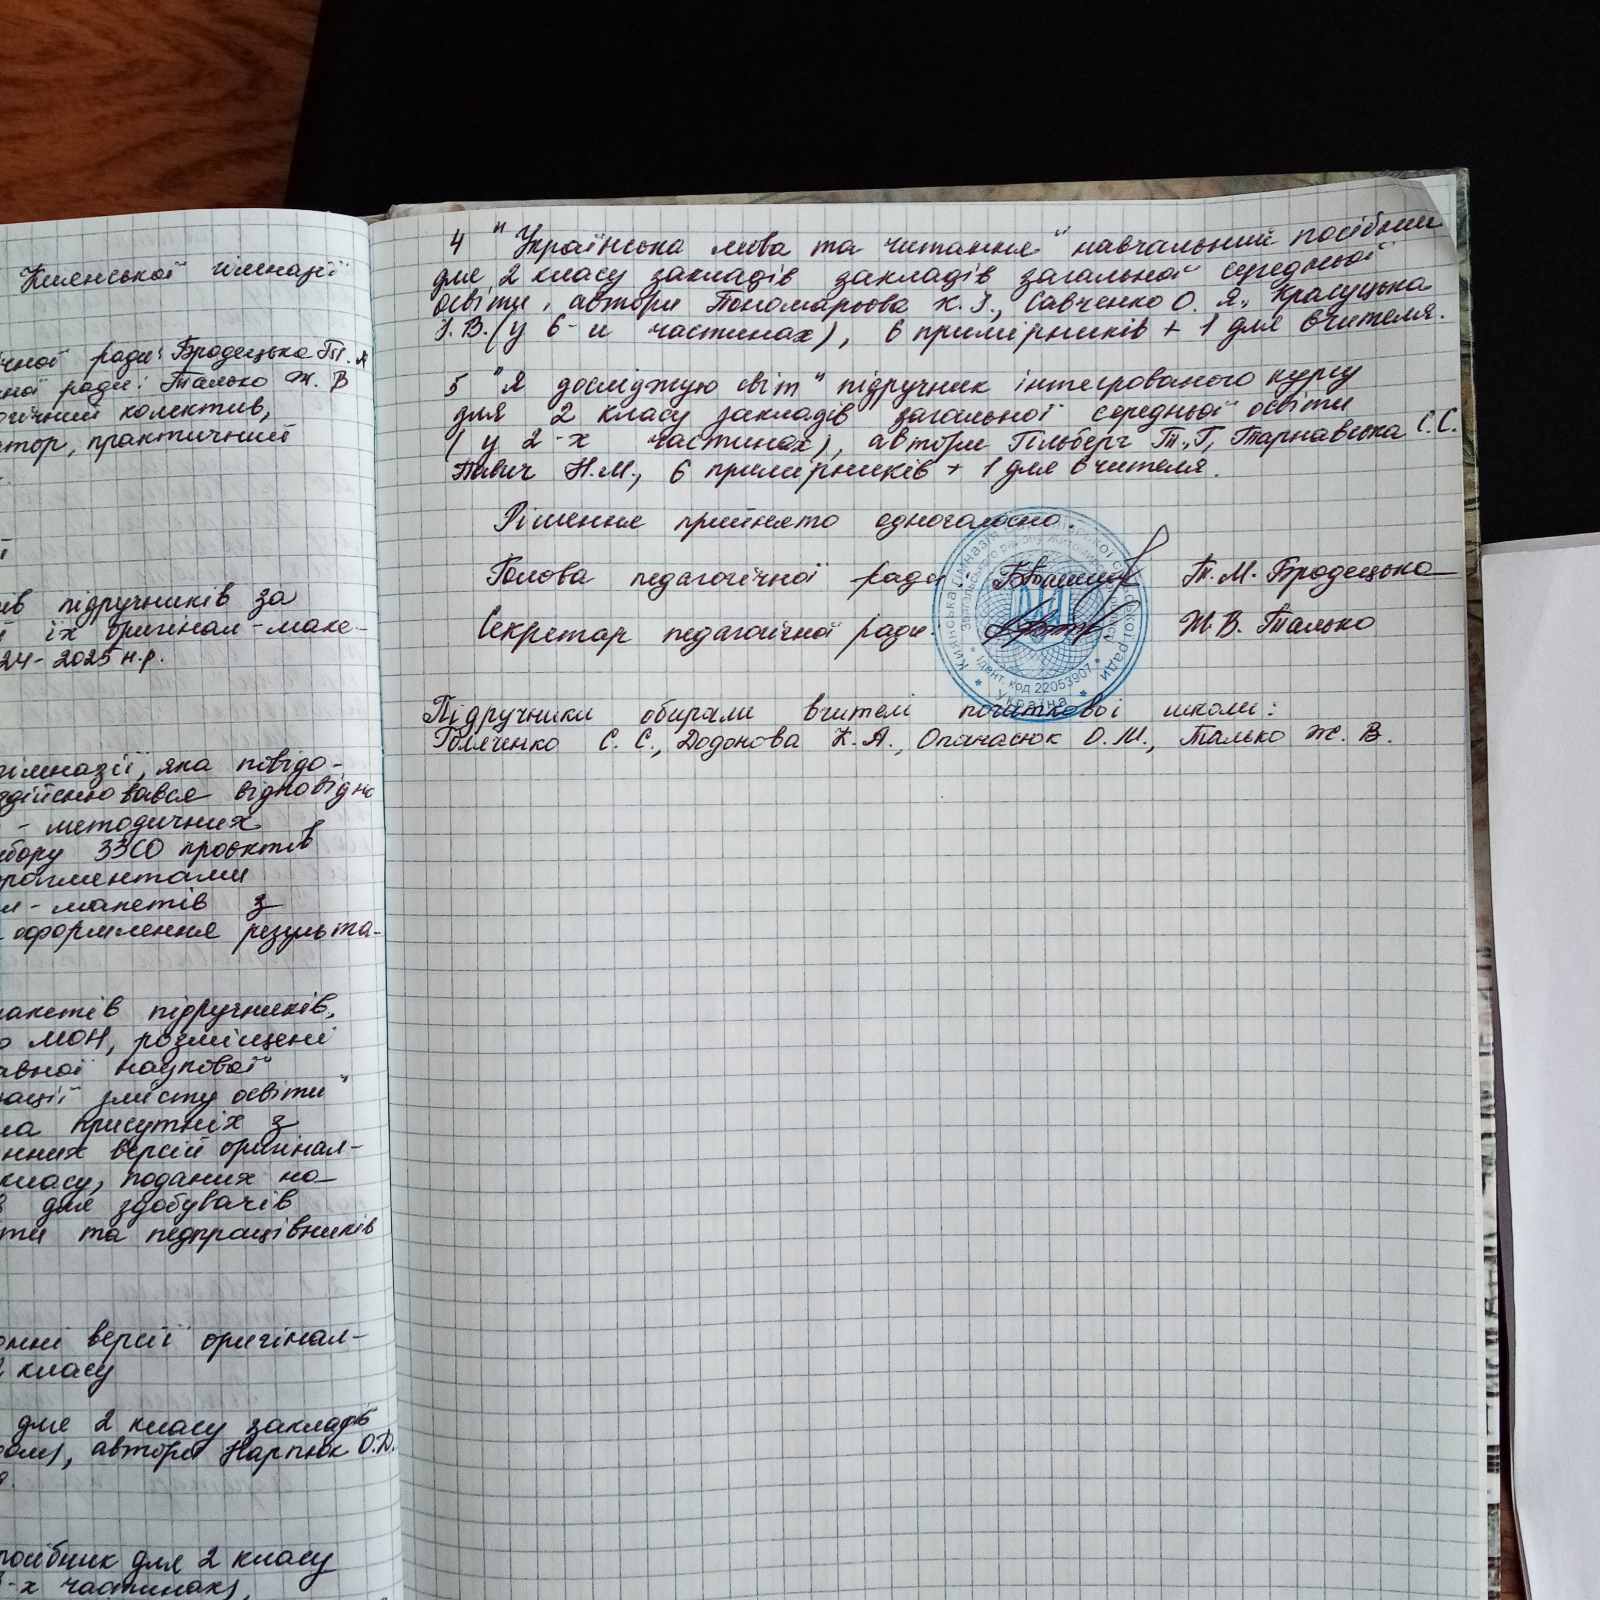 Киянської гімназії
ради: Бродецька Т. М
ної ради: Талько Ж. В
колектив,
практичний
підручників за
їх оригінал-маке-
24-2025 н.р.
гімназії, яка повідо-
здійснювався відповідно
- методичних
бору ЗЗСО проєктів
фрагментами
- макетів з
оформлення результа-
макетів підручників,
МОН, розміщені
наукової
змісту освіти"
присутніх з
версій оригінал-
класу, поданих на
для здобувачів
та педпрацівників
версії оригінал-
класу
для 2 класу закладів
автори Нарпюк О.Д.
посібник для 2 класу
-х частинах),
4 "Українська мова та читання" навчальний посібник
для 2 класу закладів закладів загальної середньої
освіти, автори Пономарьова К. І., Савченко О. Я., Красуцька
І. В. (у 6-и частинах), 6 примірників + 1 для вчителя.
5 "Я досліджую світ" підручник інтегрованого курсу
для 2 класу закладів загальної середньої освіти
(у 2-х частинах), автори Гільберг Т. Г, Тарнавська С.С.
Павич Н.М., 6 примірників + 1 для вчителя.
Рішення прийнято одноголосно.
Голова педагогічної ради: Т. М. Бродецька
Секретар педагогічної ради: Ж. В. Талько
Ідент. код 22053907
Україна
Підручники обирали вчителі початкової школи:
Голяченко С. С., Додонова К. А., Опанасюк О. М., Талько Ж. В.